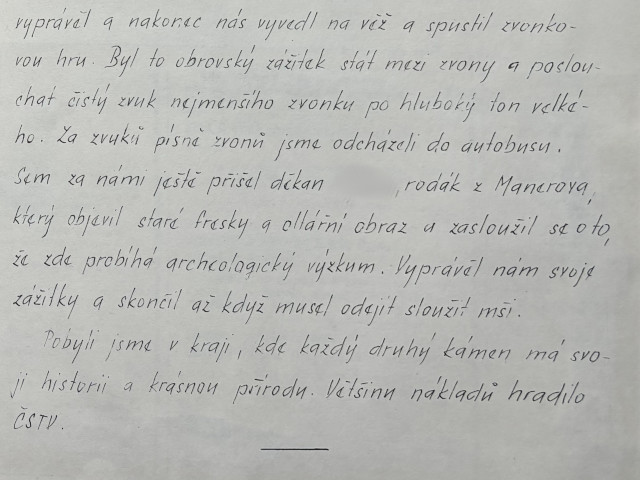 vyprávěl a nakonec nás vyvedl na věž a spustil zvonko-
vou hru. Byl to obrovský zážitek stát mezi zvony a poslou-
chat čistý zvuk nejmenšího zvonku po hluboký ton velké-
ho. Za zvuků písně zvonů jsme odcházeli do autobusu.
Sem za námi ještě přišel děkan , rodák z Manerova,
který objevil staré fresky a ollářní obraz a zasloužil se o to,
že zde probíhá archeologický výzkum. Vyprávěl nám svoje
zážitky a skončil až když musel odejít sloužit mši.
Pobyli jsme v kraji, kde každý druhý kámen má svo-
ji historii a krásnou přírodu. Většinu nákladů hradilo
ČSTV.